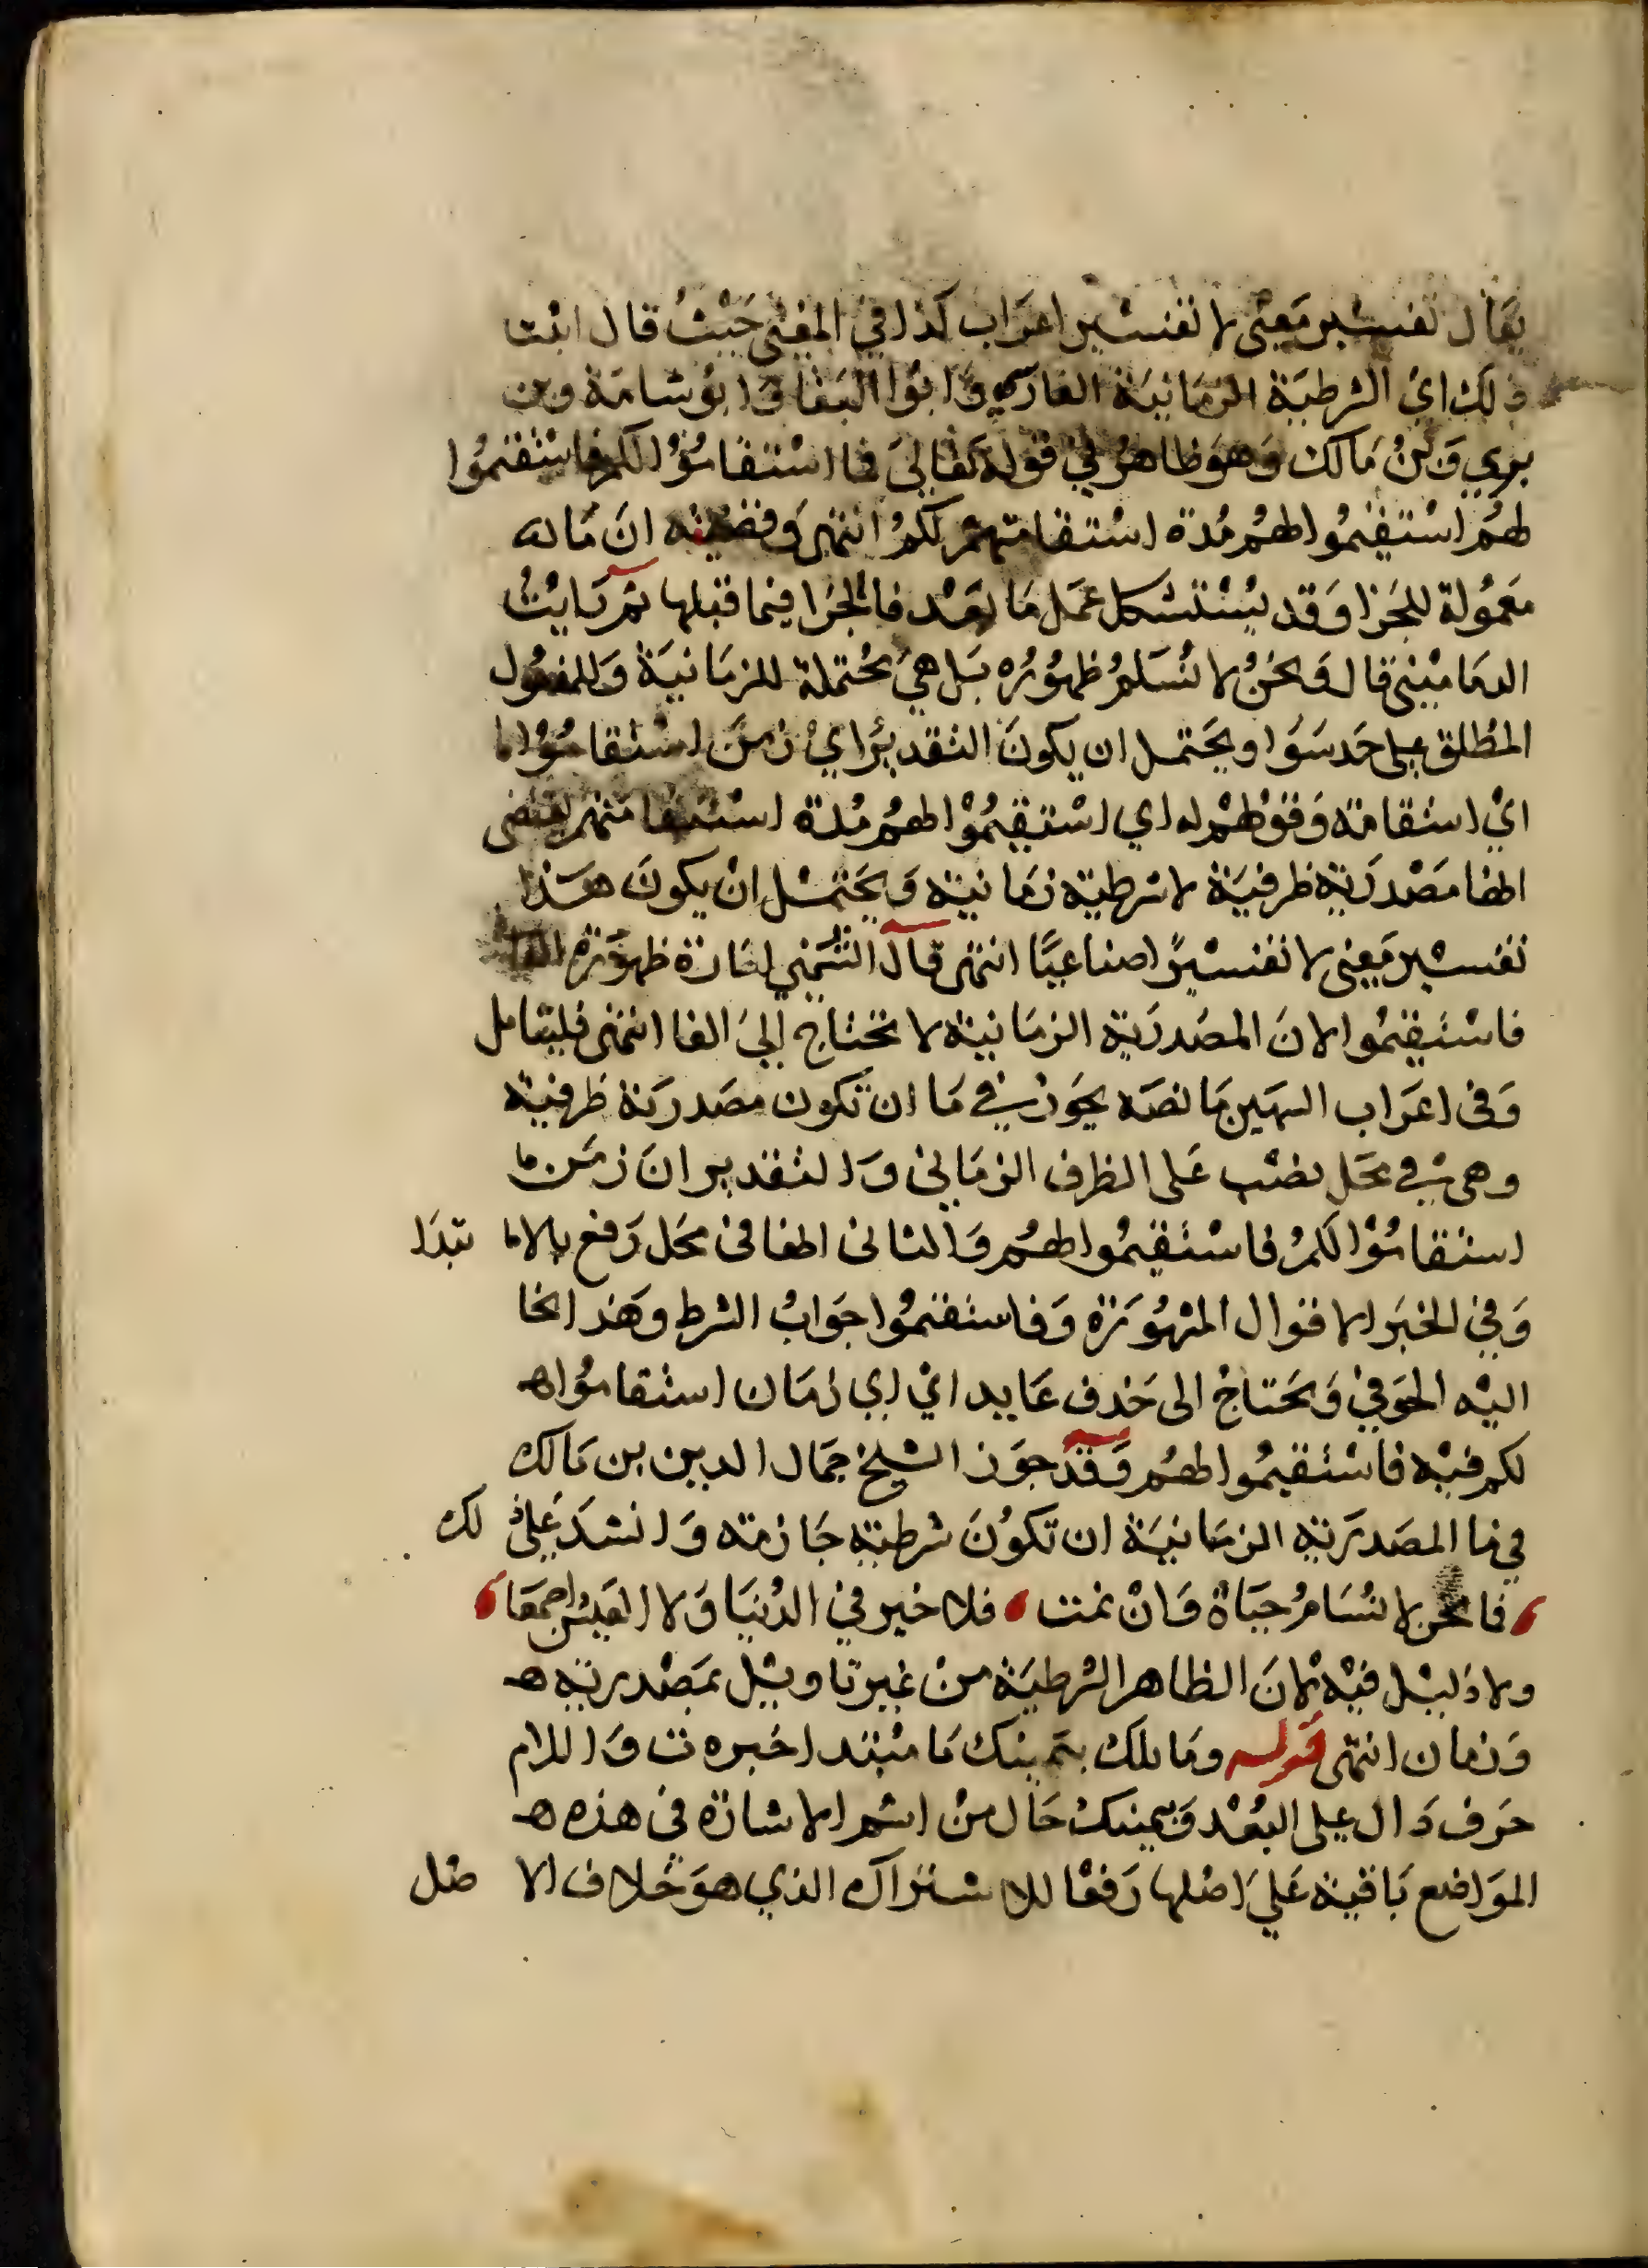 يقال تفسير معنى لا تفسير اعراب كذا في المغني حَيْثُ قال اثبت
ذلك اي الشرطيَة الزمَانيَة الفارسي وَابوُا البَقا وَابوُ شامَة وبن
بري وَبنُ مَالك وَهوَ ظاهرُ في قوله تعَالىَ فما اسْتقامُوْا لكم فاسْتقيمُوا
لهمُ اسْتقيْمُوا لهمُ مُدة اسْتقامتهمْ لكمُ انتهى وقضيته انَ مَا له
مَعمُولة للجَزا وَقد يسْتشكل عمَل مَا بَعْد فا الجزا فيما قبلها ثم رَايْتُ
الدمَامْيْني قال وَنحْنُ لا نُسَلمُ ظهوُرُه بَل هيَ محْتملة للزمَانيَة وَللمفعُول
المطْلق على حَد سَوَا ويحَتمل ان يكونَ التقديرُ ايْ زمنَ اسْتقامُوْا ما
ايْ استقامة وَقوْلهْم له اي اسْتقيْمُوْا لهمُ مُدة استقامتهم يقتضى
انها مَصْدَريَة ظرفيَة لا شرطية زمَانية وَيحَتمْل انْ يكونَ هَذا
تفسْير مَعنى لا تفسْيرًا صناعيًا انتهى قال الشمُني اشارة ظهوُره الفا
فاسْتقيمُوا لانَ المصَدريَة الزمَانية لا تحتاج اليَ الفا انتهى فليتامل
وَفى اعرَاب السَمين مَا نصَه يجَوز في مَا ان تكون مصَدريَة ظرفية
وهى في محَل نصْب عَلى الظرف الزمَاني وَالتقدير انَ زمَن ما
استقامُوْا لكمُ فاسْتقيمُوا لهمُ وَالثانى انها فى محَل رَفع بالابا تبَدَا
وَفي الخبَر الاقوال المشهوُرَة وَفاستقيموُا جَوَابُ الشرط وَهذا نحَا
اليْه الحَوفي وَيحَتاجْ الى حَذف عَايد ايْ اي زمَان استقامُوا هـ
لكم فيْه فاسْتقيمُوا لهمُ وَقدْ جوَز الشيخ جمَال الدين بن مَالك
في ما المصَدرَية الزمَانيَة ان تكوُنَ شرطية جَازمة وَانشدَ عَلى ذ لك
، فما نحن لا نُسَامُ حيَاة وَانْ تمت ، فلا خير في الدُنيَا وَلا العَيْش اجمعَا ،
ولا دَليْل فيْه لانَ الظاهر الشرطيَة منْ غير تاويْل بمَصْدرية هـ
وَزمان انتهى قوله ومَا تلك بيَمينك مَا مبْتدا خبره ت وَاللام
حَرف دَال على البُعْد وَبيَمينكْ حَال منْ اسْم الاشارة في هذه هـ
الموَاضع بَاقية عَليَ اصْلها رَفعْا للاشتراك الذي هوَ خلاف الا صْل